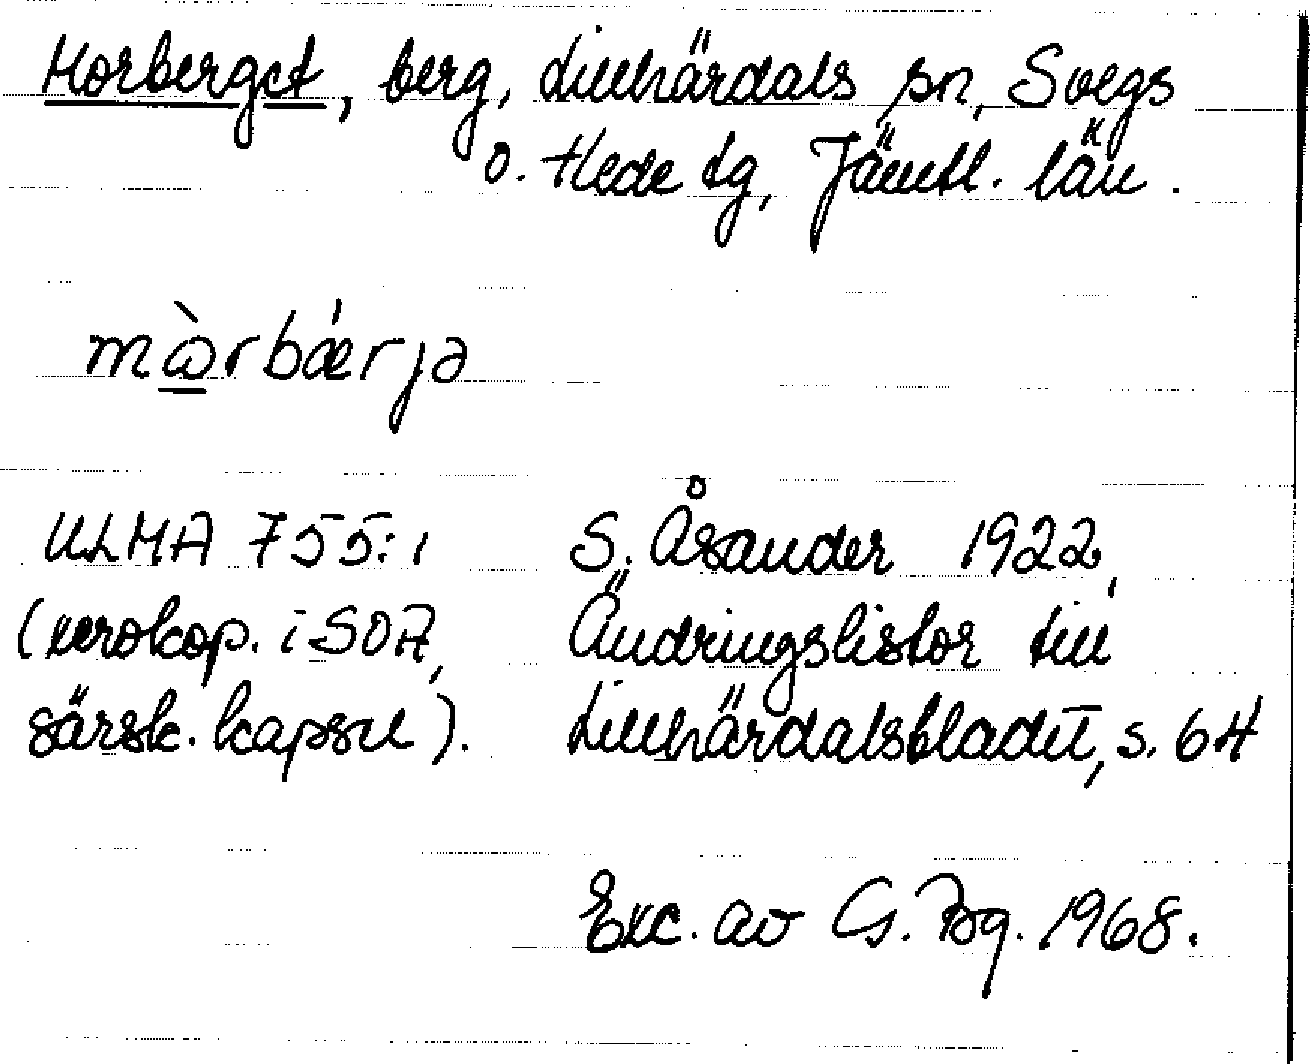 Morberget, berg, Lillhärdals sn, Svegs
o. Hede tg, Jämtl. län.
mὼrbǽrjə
ULMA 755:1 S. Åsander 1922,
(xerokop. i SOA, Ändringslistor till
särsk. kapsel). Lillhärdalsbladet, s. 64
Exc. av G. Bg. 1968.